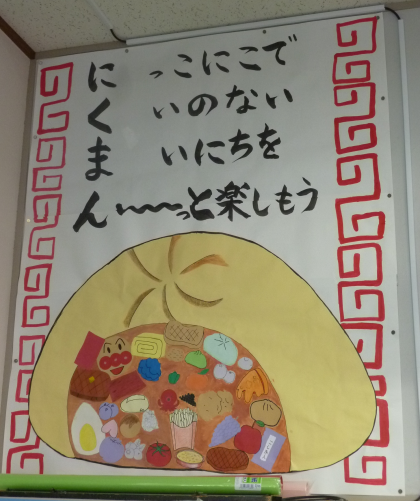 にっこにこで
くいのない
まいにちを
ん〜〜〜っと楽しもう